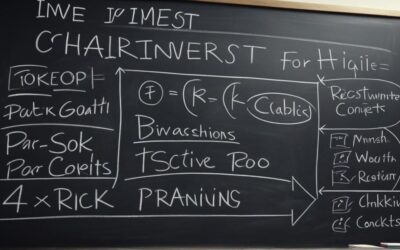 INVE IP IMEST
CHAIRINVERST FOR HIGILE=
TOREOP
PATK GOATTI
PAR-SOK
POAR COPEITS
4 x RICK
F = (R - (k- Crablis)
BIWASCHIONS
TSCTIVE ROO
PRANIUNS
RECSTUWNITE
CONJETS
MNNSH
WOUTTH
RESTURY
CHNKKIU
CONCKTS